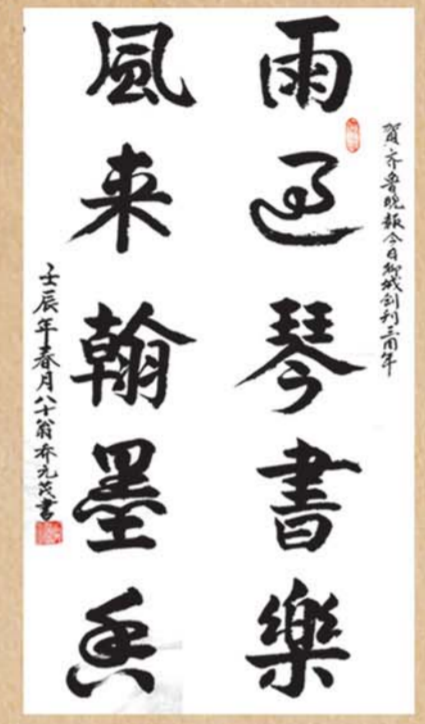 賀齐魯晚報今日聊城創刊三周年
雨過琴書樂
風来翰墨香
壬辰年春月八十翁乔元茂書